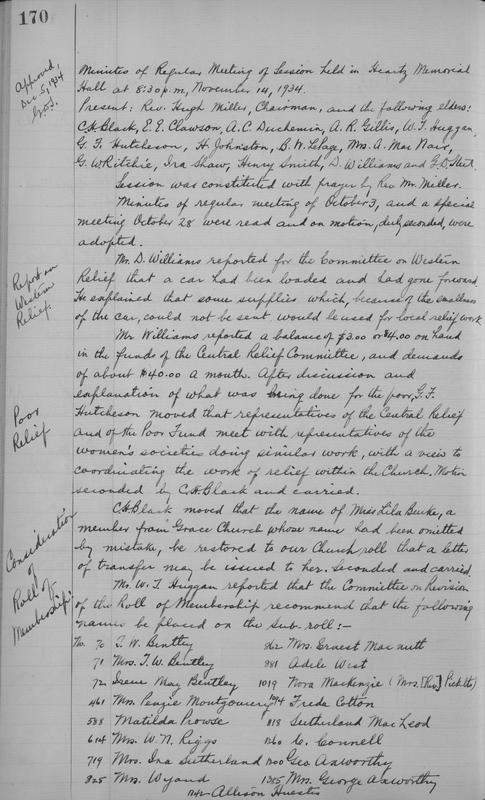 170
Approved,
Dec 5, 1934
Minutes of Regular Meeting of Session held in Heartz Memorial
Hall at 8:30 p.m., November 14, 1934.
Present: Rev. Hugh Miller, Chairman, and the following elders:
C.H. Black, E.E. Clawson, A.C. Duchemin, A.R. Gillis, W.T. Huggan,
G.F. Hutcheson, H. Johnston, B.W. LePage, Wm. A. MacNair,
G.W Ritchie, Ira Shaw, Henry Smith, D. Williams and G.D. Stent.
Session was constituted with prayer by Rev. Mr. Miller.
Minutes of regular meeting of October 3, and a special
meeting October 28 were read and on motion, duly seconded, were
adopted.
Report on
Western
Relief.
Mr. D. Williams reported for the Committee on Western
Relief that a car had been loaded and had gone forward.
He explained that some supplies which, because of the smallness
of the car, could not be sent, would be used for local relief work.
Mr. Williams reported a balance of $3.00 or $4.00 on hand
in the funds of the Central Relief Committee, and demands
of about $40.00 a month. After discussion and
explanation of what was being done for the poor, G.F.
Poor
Relief
Hutcheson moved that representatives of the Central Relief
and of the Poor Fund meet with representatives of the
women's societies doing similar work, with a view to
coordinating the work of relief within the Church. Motion
seconded by C.H. Black and carried.
Consideration
of
Roll of
Membership:
C.H. Black moved that the name of Miss Lila Burke, a
member from Grace Church whose name had been omitted
by mistake, be restored to our Church roll that a letter
of transfer may be issued to her. Seconded and carried.
Mr. W.T. Huggan reported that the Committee on Revision
of the Roll of Membership recommend that the following
names be placed on the Sub-roll:-
No. 70 T.W. Bentley 862 Mrs. Ernest Macnutt
71 Mrs. T.W. Bentley 881 Adele West
72 Irene May Bentley 1019 Nora Mackenzie (Mrs. [Rev.] Picketts)
461 Mrs. Penzie Montgomery 1094 Freda Cotton
588 Matilda Prowse 818 Sutherland MacLeod
614 Mrs. W.N. Riggs 1260 C. Connell
719 Mrs. Ina Sutherland 1200 Geo. Axworthy
825 Mrs. Wyand 1315 Mrs. George Axworthy
1242 Allison Huestis